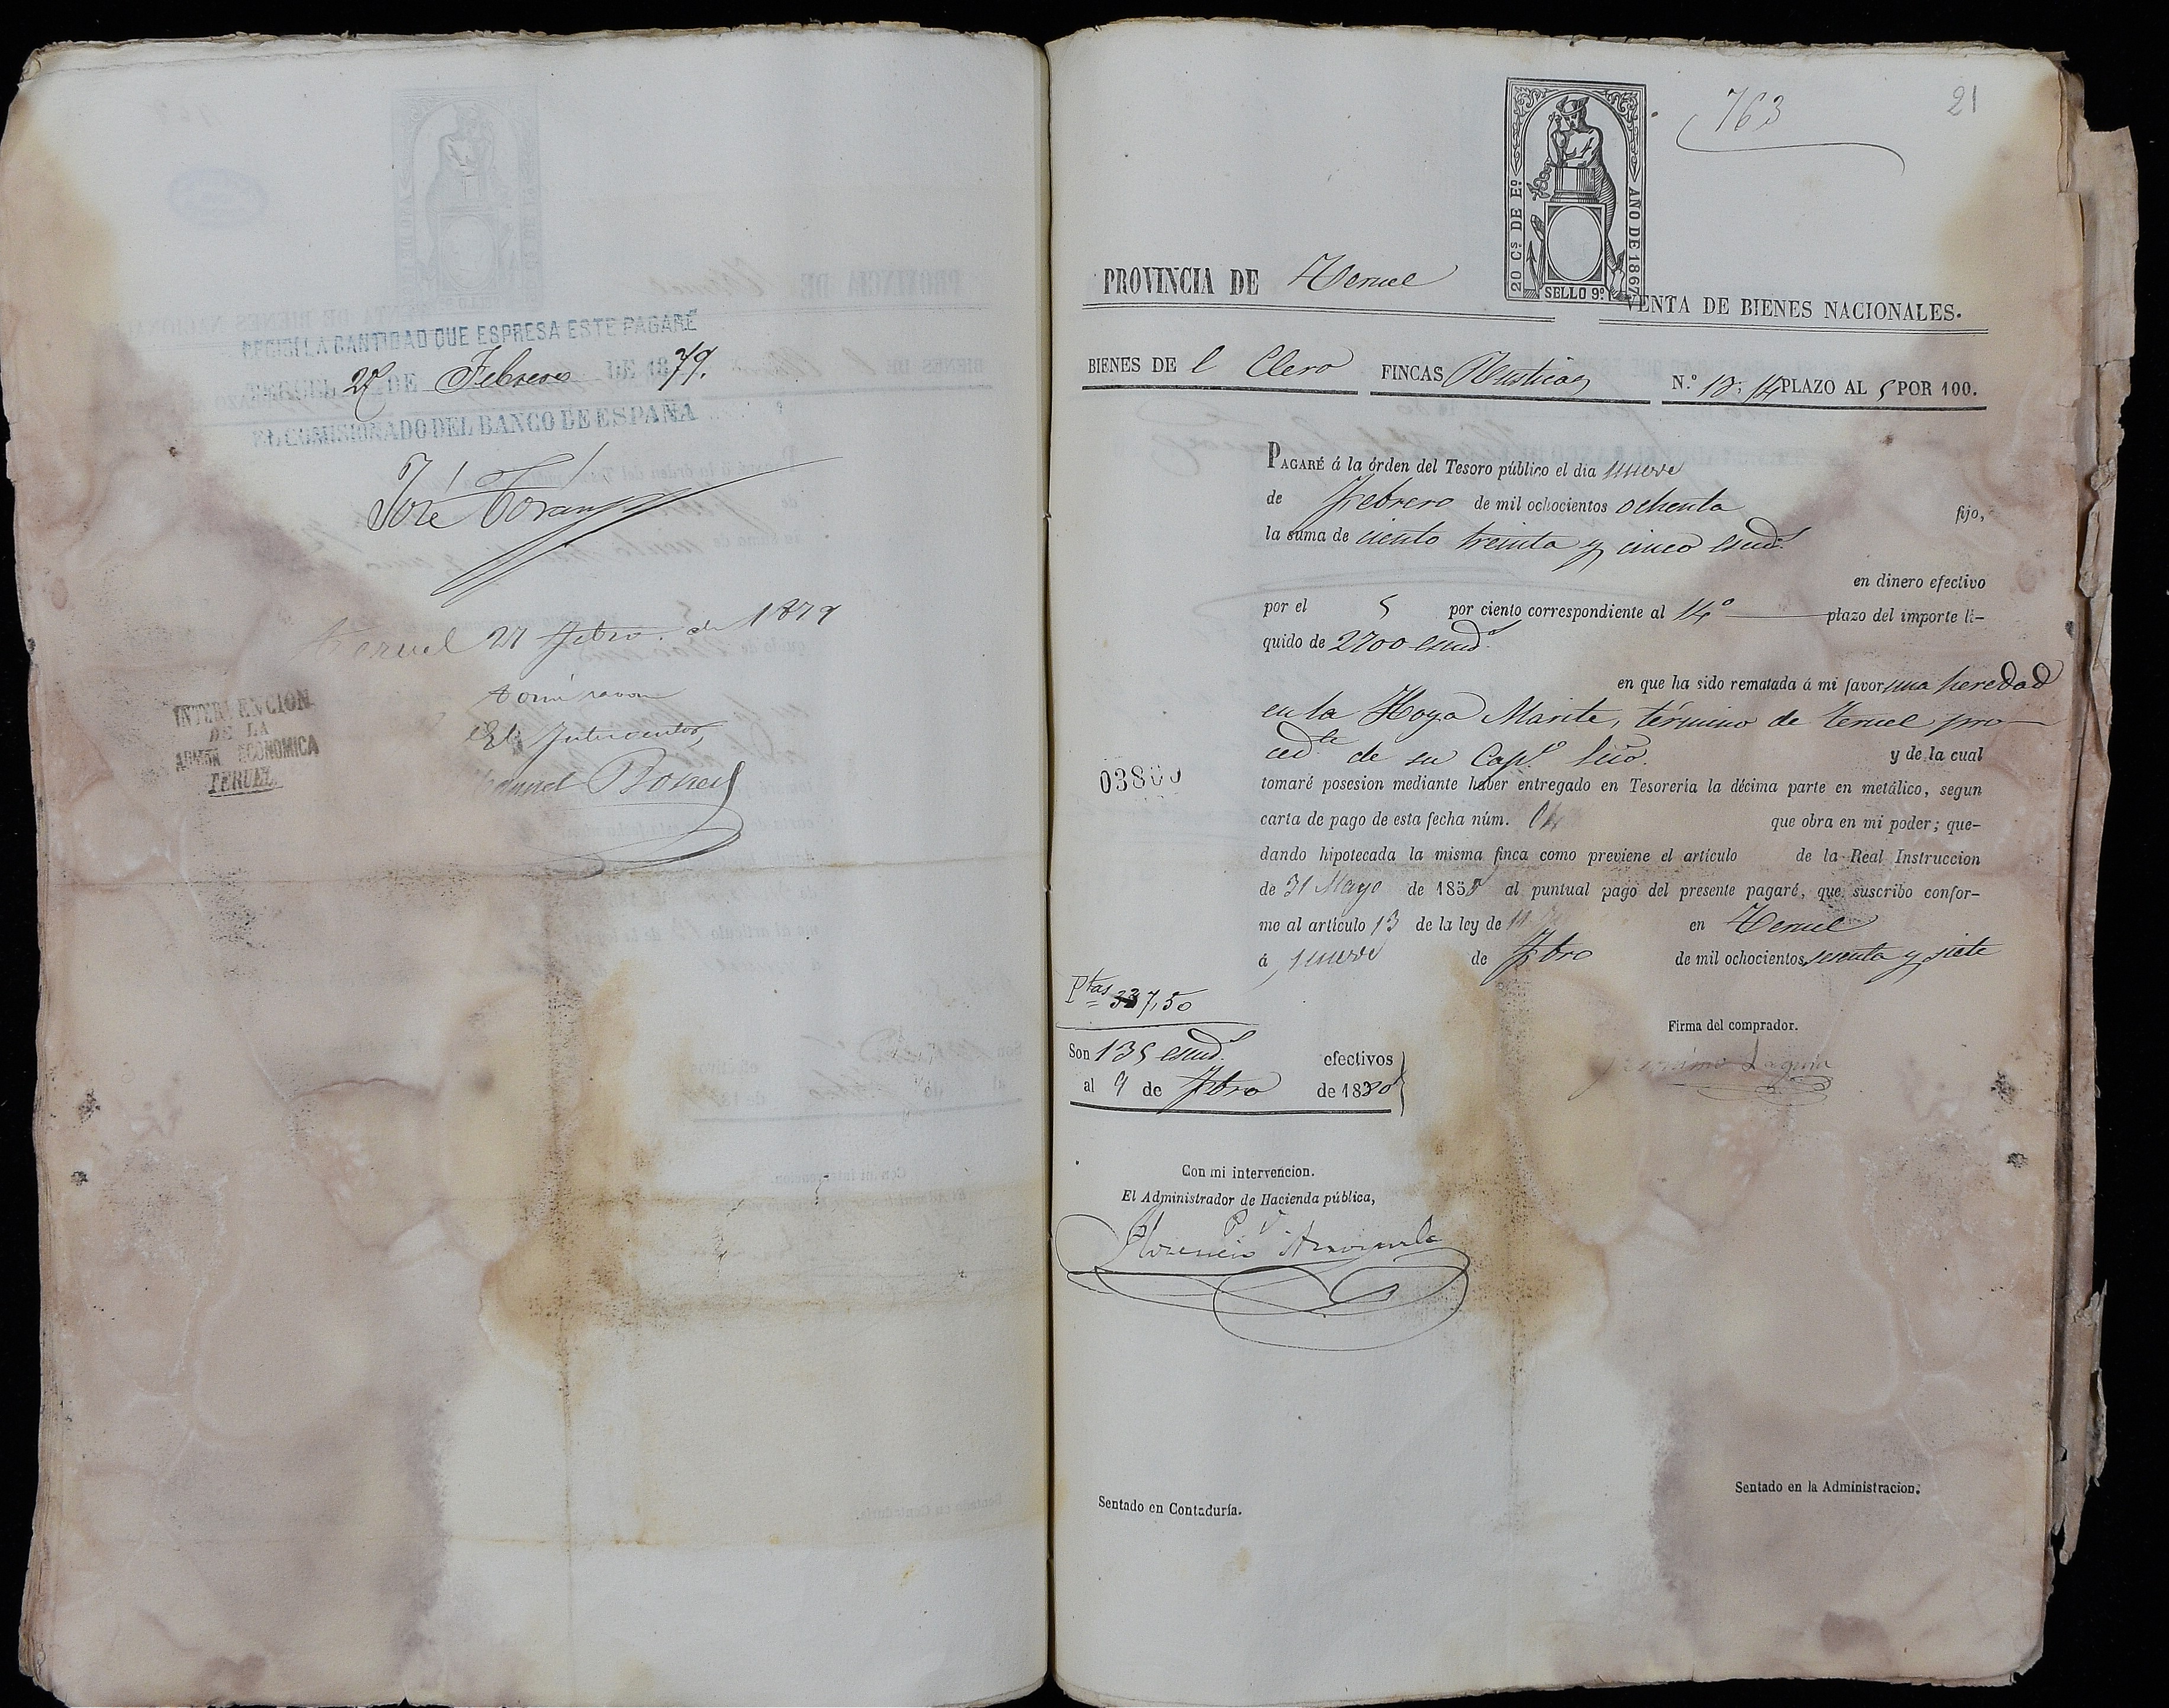 RECIBI LA CANTIDAD QUE ESPRESA ESTE PAGARÉ
TERUEL 27 DE Febrero DE 1879.
EL COMISIONADO DEL BANCO DE ESPAÑA
José Toran
Teruel 27 Febro. de 1879
Tomé razon
El Interventor,
Manuel
INTERVENCION
DE LA
ADMON ECONOMICA
TERUEL
763
21
20 Cs. DE Eº
AÑO DE 1867
SELLO 9º
PROVINCIA DE Teruel
VENTA DE BIENES NACIONALES.
BIENES DE l Clero FINCAS Rusticas N.º 13. 14 PLAZO AL 5 POR 100.
PAGARÉ á la órden del Tesoro público el dia nueve
de Febrero de mil ochocientos ochenta fijo,
la suma de ciento treinta y cinco escud.s
en dinero efectivo
por el 5 por ciento correspondiente al 14º plazo del importe lí-
quido de 2700 escud.s
en que ha sido rematada á mi favor una heredad
en la Hoya Marite, término de Teruel pro
ced.te de su Cap.º y de la cual
tomaré posesion mediante haber entregado en Tesorería la décima parte en metálico, segun
carta de pago de esta fecha núm. que obra en mi poder; que-
dando hipotecada la misma finca como previene el artículo de la Real Instruccion
de 31 Mayo de 1855 al puntual pago del presente pagaré, que suscribo confor-
me al artículo 13 de la ley de 11 en Teruel
á nueve de Fbro de mil ochocientos sesenta y siete
03800
Ptas 337,50
Son 135 escud.s efectivos
al 9 de Fbro de 1880
Firma del comprador.
Laguia
Con mi intervencion.
El Administrador de Hacienda pública,
Florencio
Sentado en Contaduría.
Sentado en la Administracion.